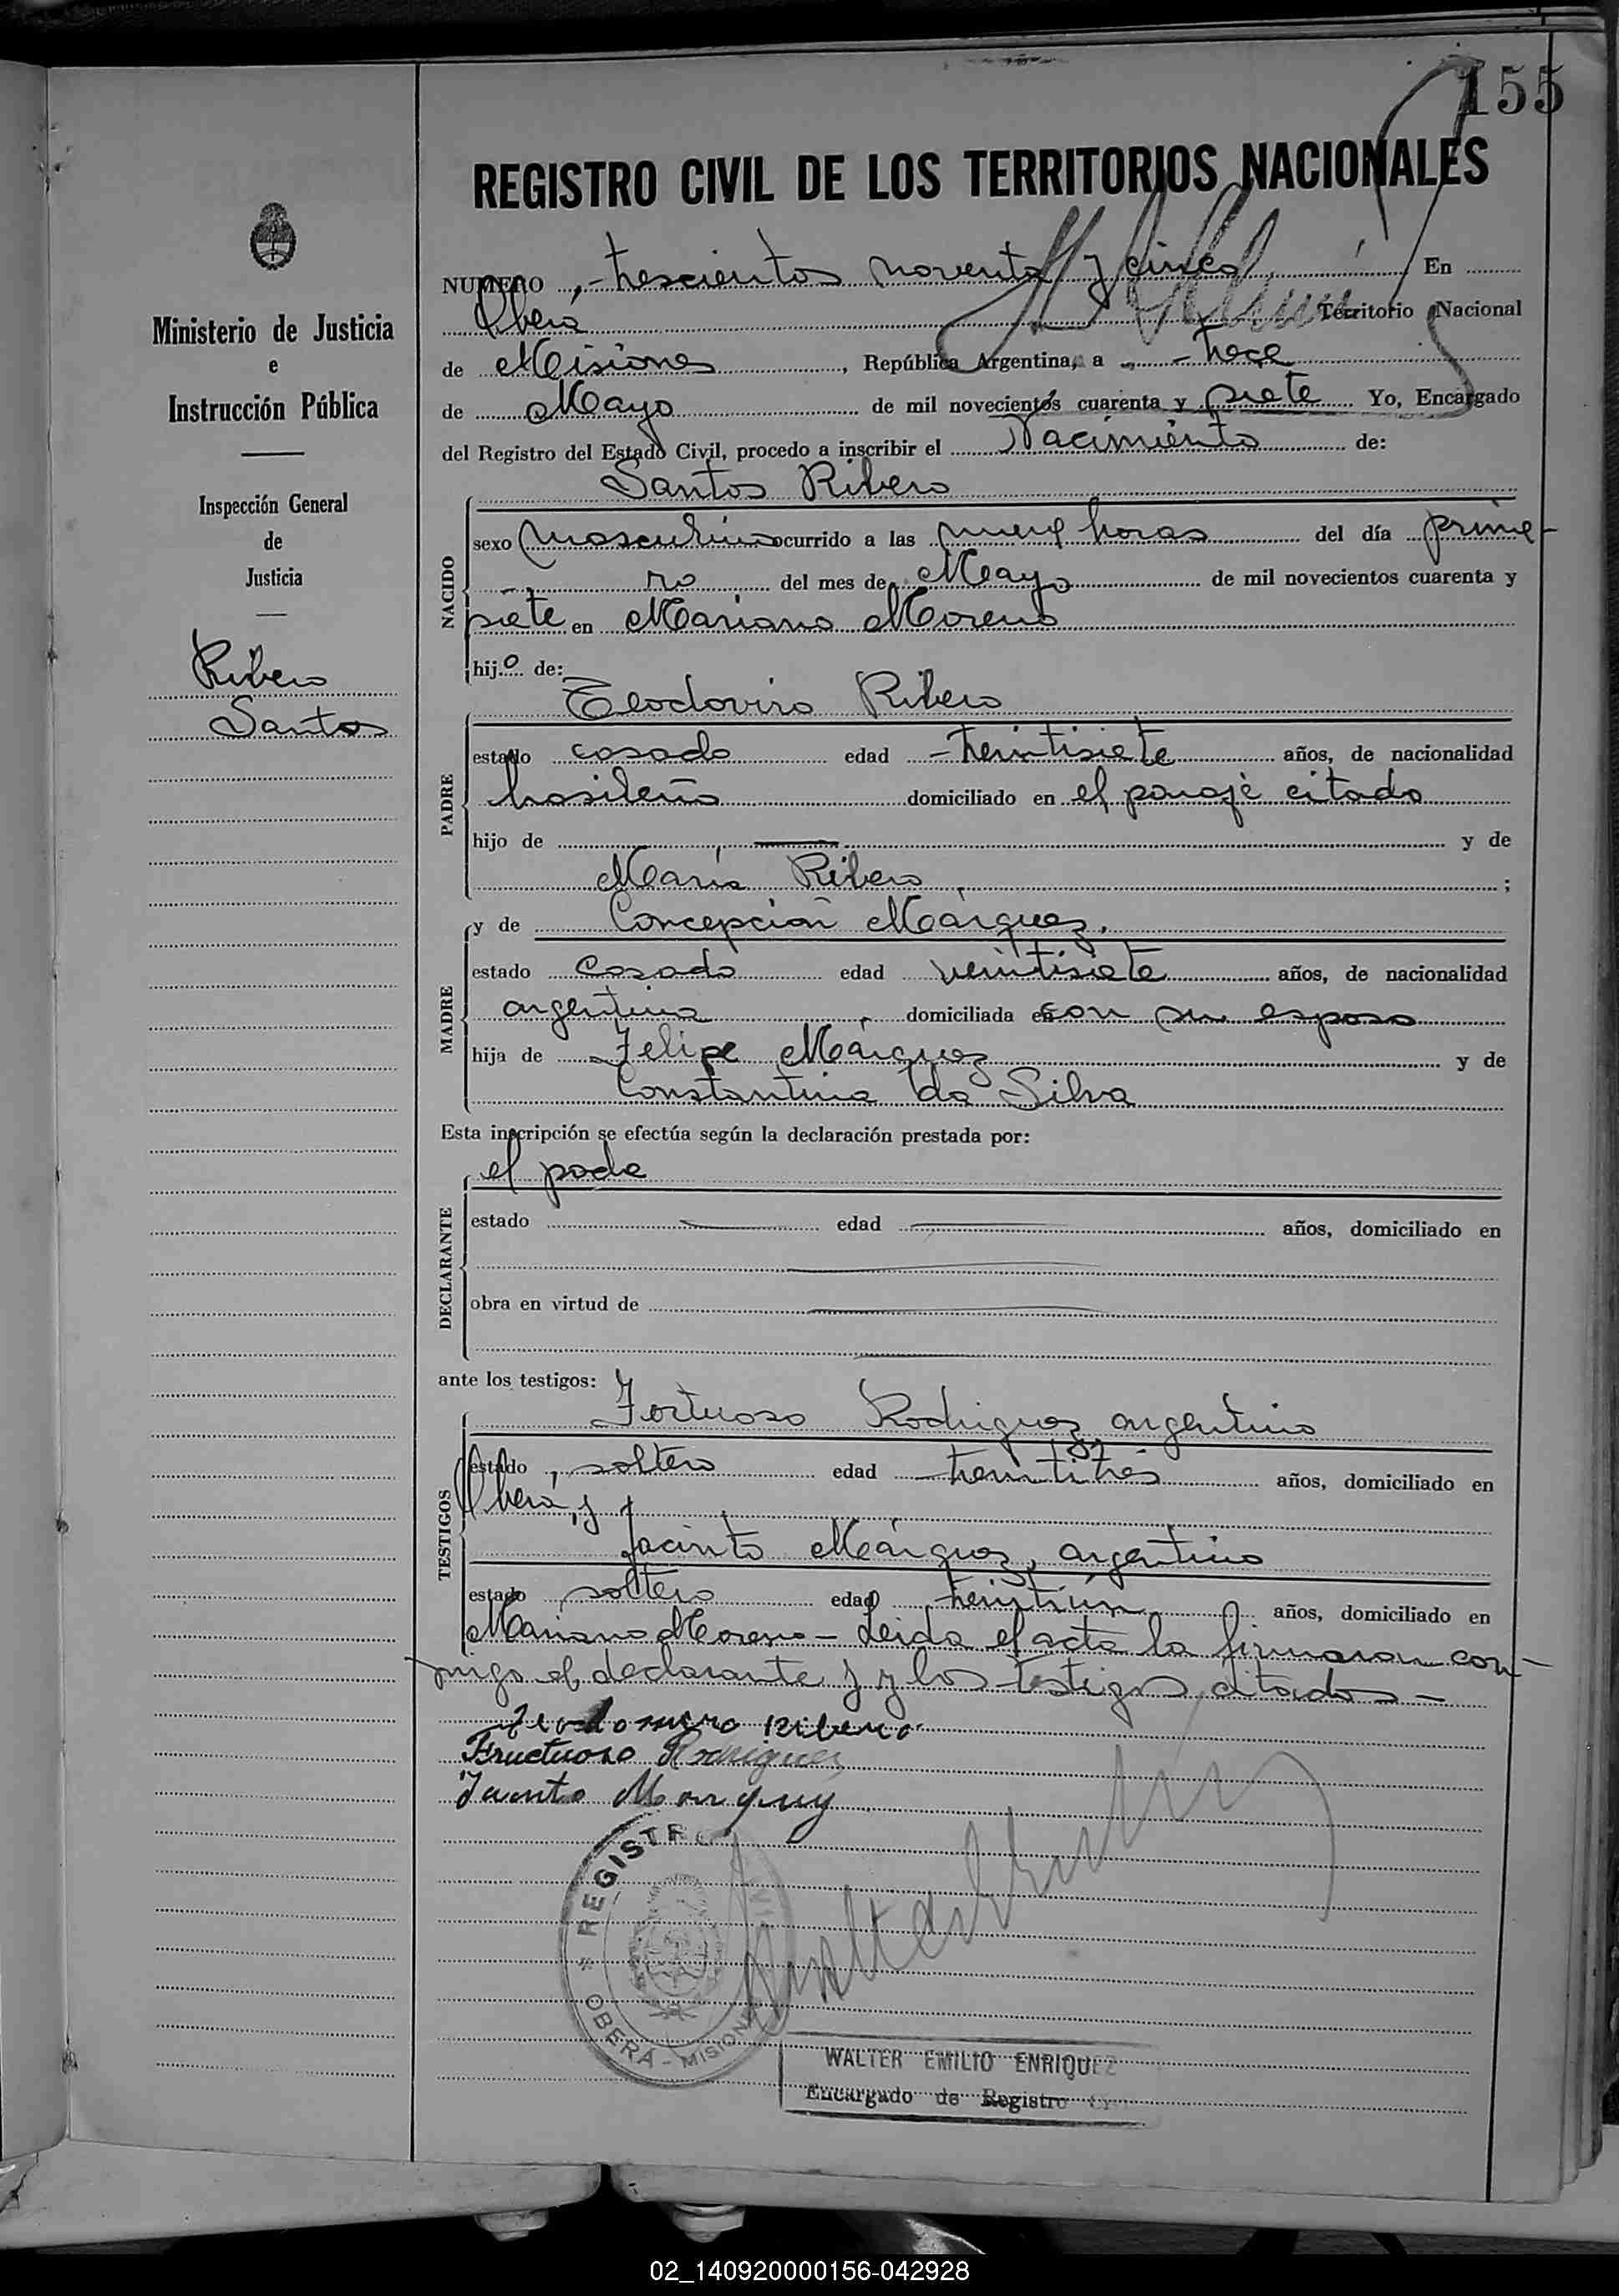 155
REGISTRO CIVIL DE LOS TERRITORIOS NACIONALES
NUMERO - trescientos noventa y cinco En
Oberá Territorio Nacional
de Misiones, República Argentina, a - trece
de Mayo de mil novecientos cuarenta y siete Yo, Encargado
del Registro del Estado Civil, procedo a inscribir el Nacimiento de:
Ministerio de Justicia
e
Instrucción Pública
Inspección General
de
Justicia
Ribero
Santos
NACIDO
Santos Ribero
sexo masculino ocurrido a las nueve horas del día prime-
ro del mes de Mayo de mil novecientos cuarenta y
siete en Mariano Moreno
hijo de:
PADRE
Teodoviro Ribero
estado casado edad - treintisiete años, de nacionalidad
brasileño domiciliado en el paraje citado
hijo de — y de
María Ribero ;
MADRE
y de Concepción Márquez,
estado casada edad veintisiete años, de nacionalidad
argentina domiciliada en con su esposo
hija de Felipe Márquez y de
Constantina da Silva
Esta inscripción se efectúa según la declaración prestada por:
DECLARANTE
el padre
estado — edad — años, domiciliado en
obra en virtud de —
ante los testigos:
TESTIGOS
Fortuoso Rodriguez argentino
estado, soltero edad treintitrés años, domiciliado en
Oberá, y
Jacinto Márquez, argentino
estado soltero edad treintiún años, domiciliado en
Mariano Moreno - Leida el acta la firmaron con-
migo el declarante y y los testigos citados -
Teodomiro Ribero
Fructuoso Rodrigues
Jacinto Marquez
REGISTRO CIVIL
OBERÁ - MISIONES
WALTER EMILIO ENRIQUEZ
Encargado de Registro
02_140920000156-042928